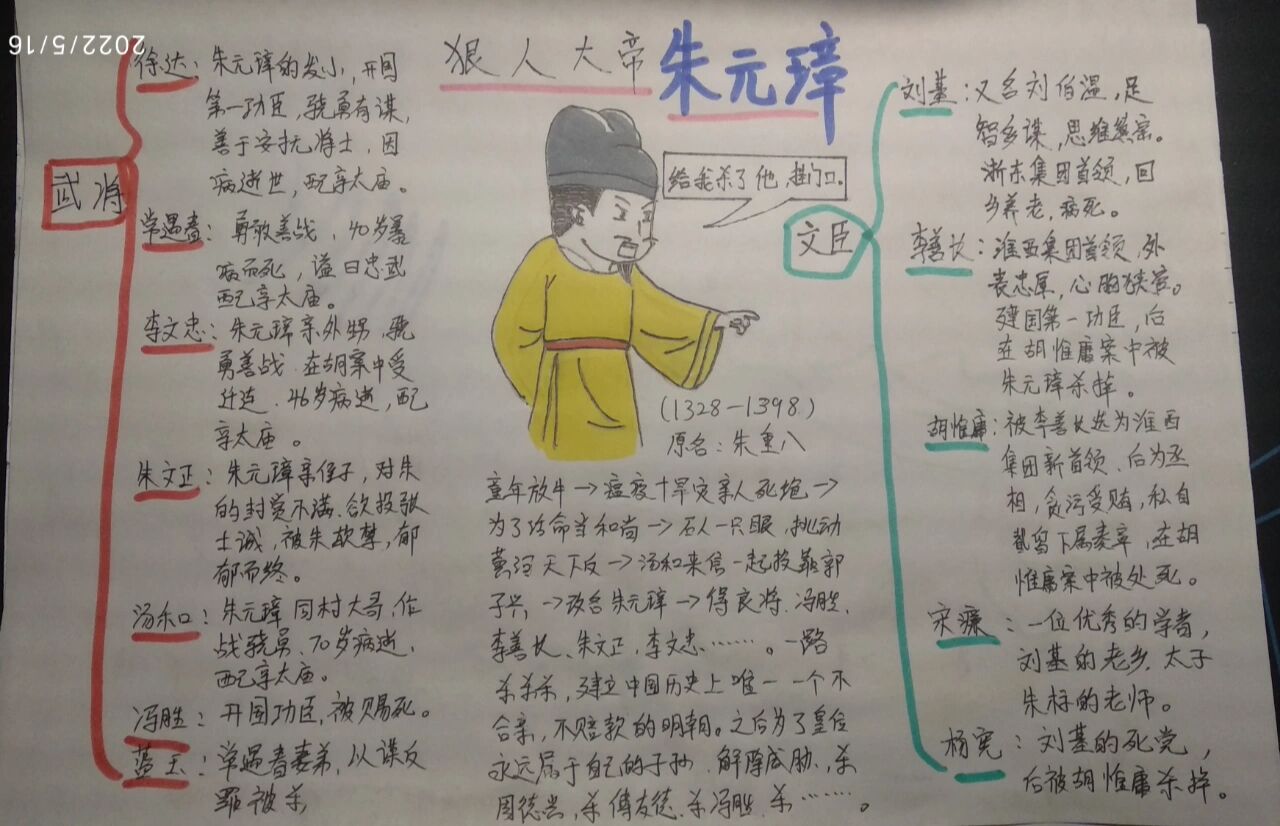 2022/5/16
狠人大帝 朱元璋
武将
徐达：朱元璋的发小，开国
第一功臣，骁勇有谋，
善于安抚将士，因
病逝世，配享太庙。
常遇春：勇敢善战，40岁暴
病而死，谥曰忠武
配享太庙。
李文忠：朱元璋亲外甥，骁
勇善战．在胡案中受
迁连．46岁病逝，配
享太庙。
朱文正：朱元璋亲侄子，对朱
的封赏不满、欲投张
士诚，被朱软禁，郁
郁而终。
汤和：朱元璋同村大哥，作
战骁勇、70岁病逝，
配享太庙。
冯胜：开国功臣，被赐死。
蓝玉：常遇春妻弟，以谋反
罪被杀，
给我杀了他，挂门口。
(1328—1398)
原名：朱重八
童年放牛→瘟疫+旱灾亲人死绝→
为了活命当和尚→石人一只眼，挑动
黄河天下反→汤和来信一起投靠郭
子兴，→改名朱元璋→得良将、冯胜、
李善长、朱文正，李文忠……。一路
杀杀杀，建立中国历史上唯一一个不
合亲，不赔款的明朝。之后为了皇位
永远属于自己的子孙．解除威胁，杀
周德兴，杀傅友德、杀冯胜、杀……。
文臣
刘基：又名刘伯温，足
智多谋，思维缜密。
浙东集团首领，回
乡养老，病死。
李善长：淮西集团首领，外
表忠厚，心胸狭窄。
建国第一功臣，后
在胡惟庸案中被
朱元璋杀掉。
胡惟庸：被李善长选为淮西
集团新首领、后为丞
相，贪污受贿，私自
截留下属奏章，在胡
惟庸案中被处死。
宋濂：一位优秀的学者，
刘基的老乡．太子
朱标的老师。
杨宪：刘基的死党，
后被胡惟庸杀掉。